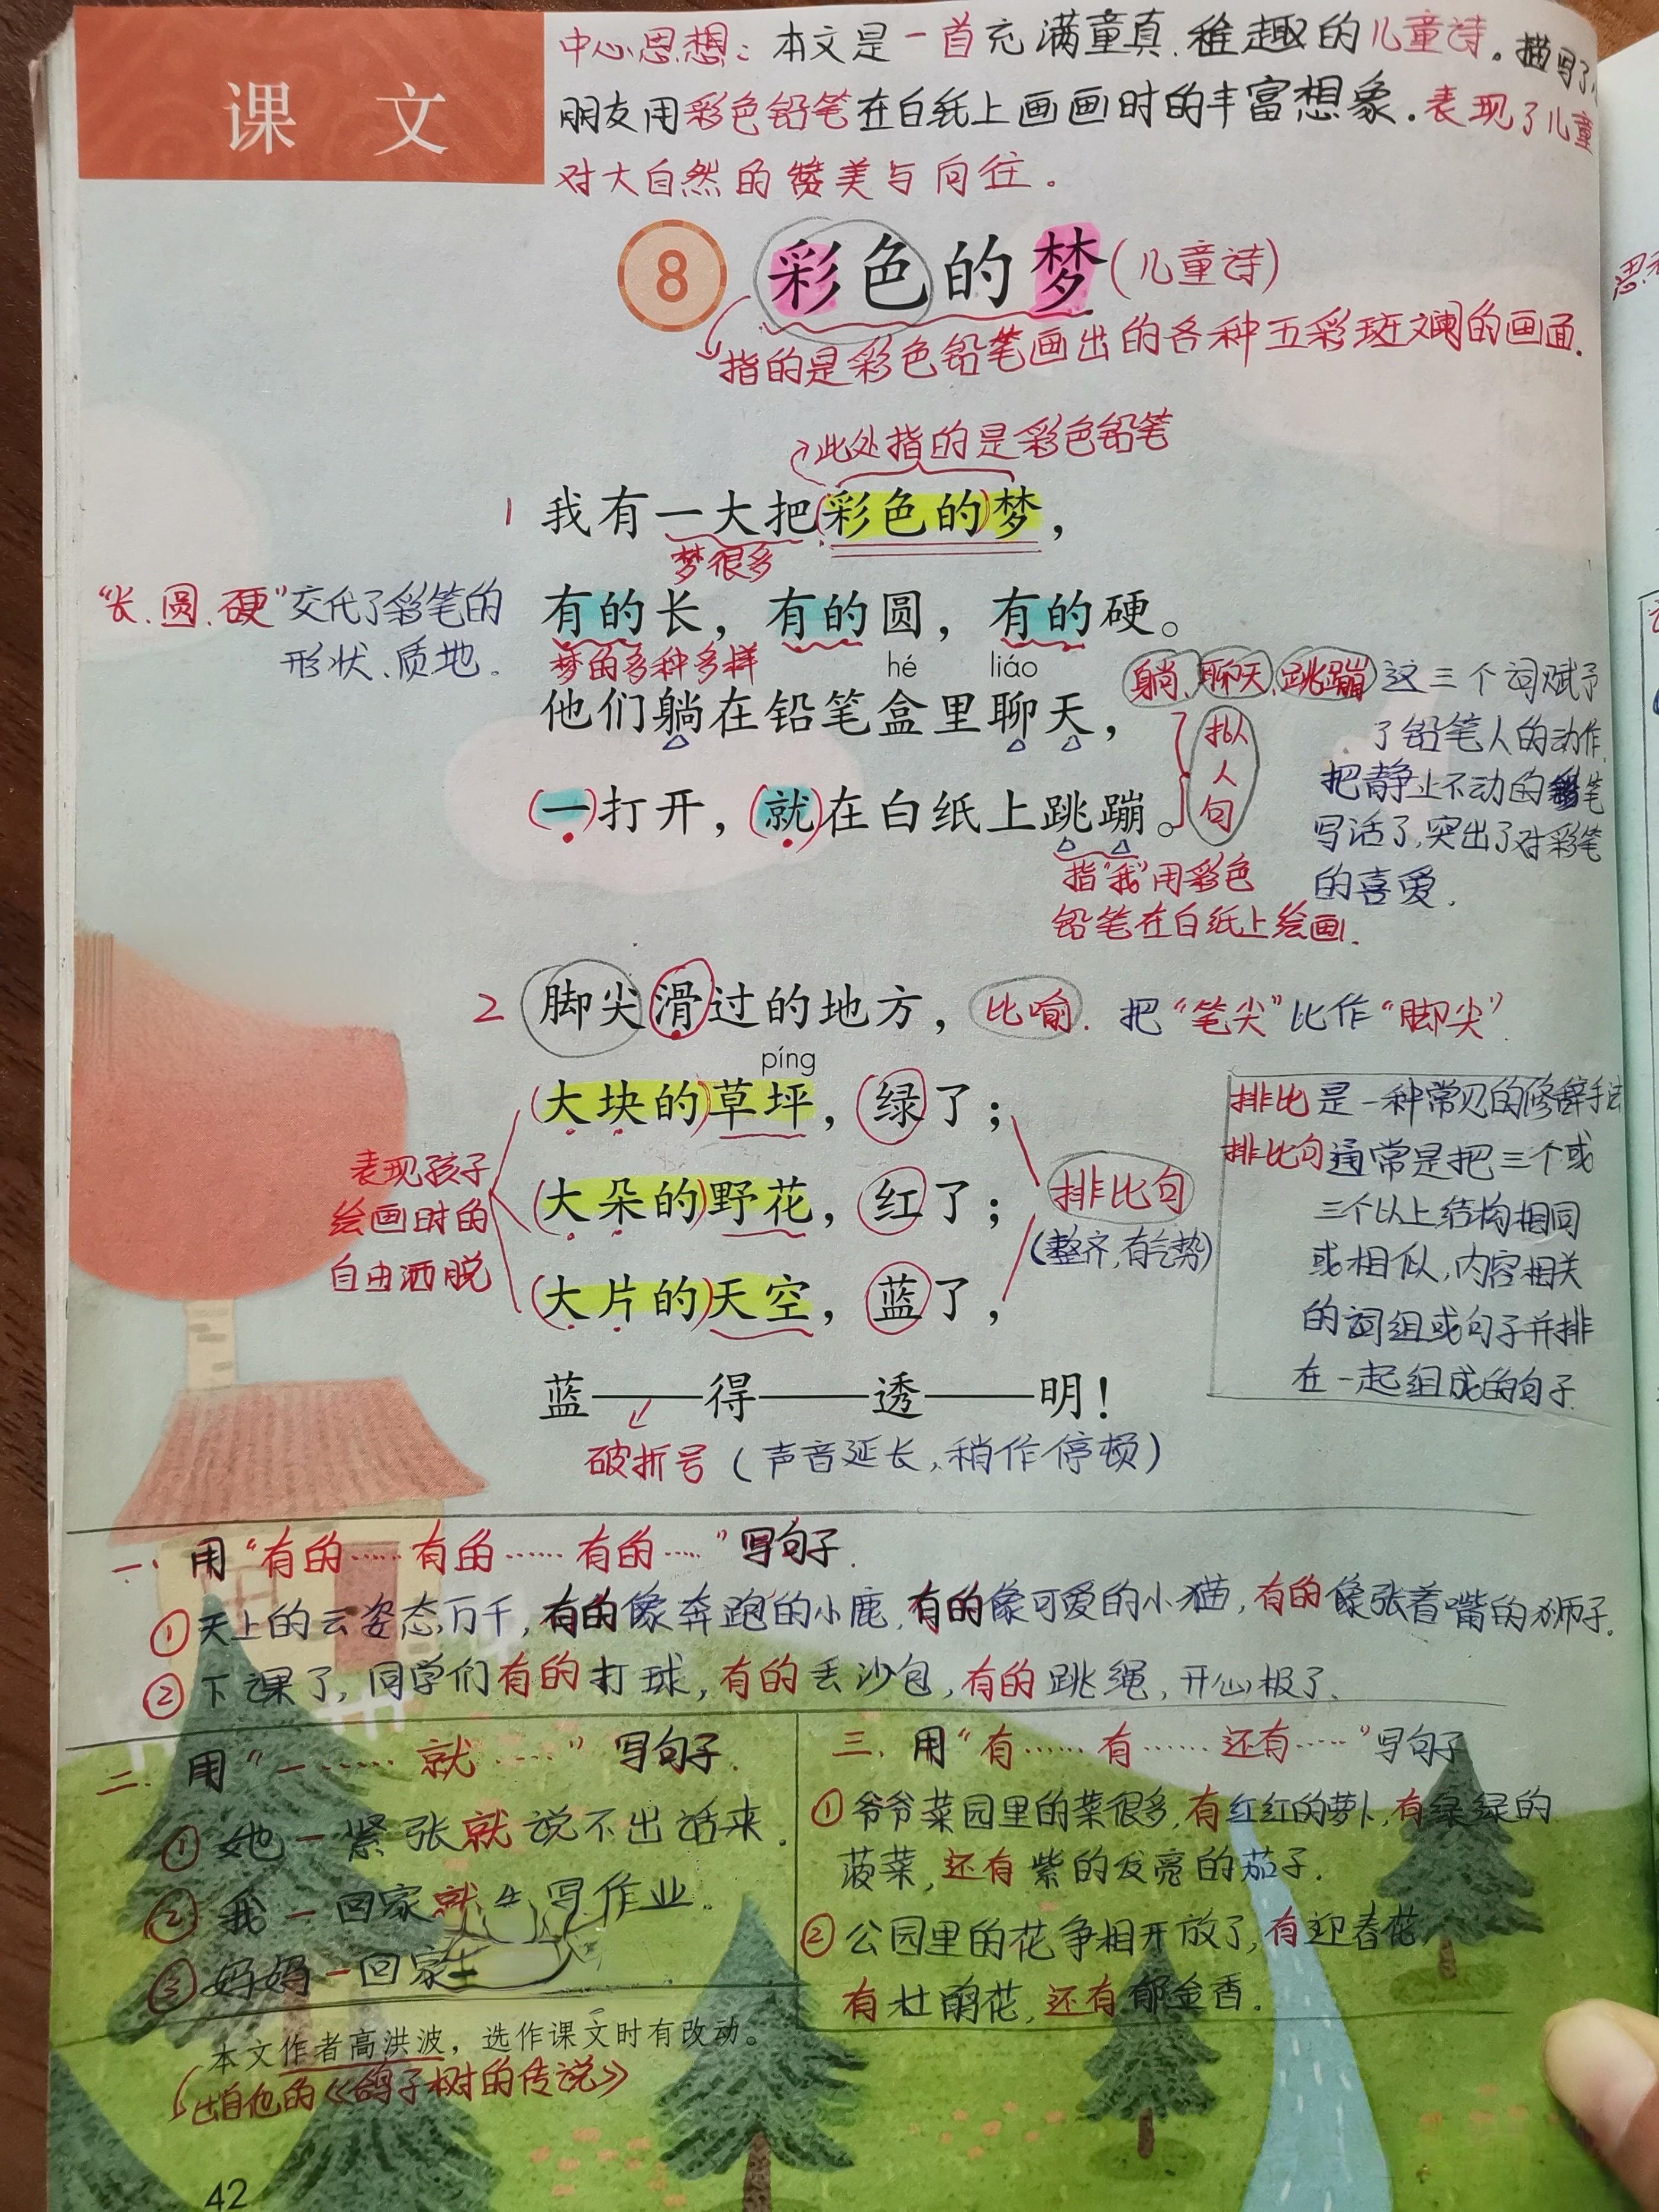 课 文
中心思想：本文是一首充满童真、稚趣的儿童诗。描写了
朋友用彩色铅笔在白纸上画画时的丰富想象。表现了儿童
对大自然的赞美与向往。
8 彩色的梦(儿童诗)
指的是彩色铅笔画出的各种五彩斑斓的画面.
此处指的是彩色铅笔
1 我有一大把彩色的梦，
梦很多
“长、圆、硬”交代了彩笔的
形状、质地.
有的长，有的圆，有的硬。
梦的多种多样
hé liáo
他们躺在铅笔盒里聊天，
(一)打开，(就)在白纸上跳蹦。
拟
人
句
躺、聊天、跳蹦 这三个词赋予
了铅笔人的动作.
把静止不动的彩笔
写活了,突出了对彩笔
的喜爱.
指“我”用彩色
铅笔在白纸上绘画.
2 脚尖滑过的地方， 比喻. 把“笔尖”比作“脚尖”
píng
(大块的)草坪，绿了；
(大朵的)野花，红了；
(大片的)天空，蓝了，
表现孩子
绘画时的
自由洒脱
排比句
(整齐,有气势)
排比是一种常见的修辞手法
排比句通常是把三个或
三个以上结构相同
或相似,内容相关
的词组或句子并排
在一起组成的句子.
蓝——得——透——明！
破折号(声音延长,稍作停顿)
一. 用“有的……有的……有的…”写句子.
①天上的云姿态万千,有的像奔跑的小鹿,有的像可爱的小猫,有的像张着嘴的狮子.
②下课了,同学们有的打球,有的丢沙包,有的跳绳,开心极了.
二. 用“一……就……”写句子.
①她一紧张就说不出话来.
②我一回家就写作业.
③妈妈一回家
三. 用“有……有……还有……”写句子
①爷爷菜园里的菜很多,有红红的萝卜,有绿绿的
菠菜,还有紫的发亮的茄子.
②公园里的花争相开放了,有迎春花,
有杜鹃花,还有郁金香.
本文作者高洪波，选作课文时有改动。
出自他的《鸽子树的传说》
42